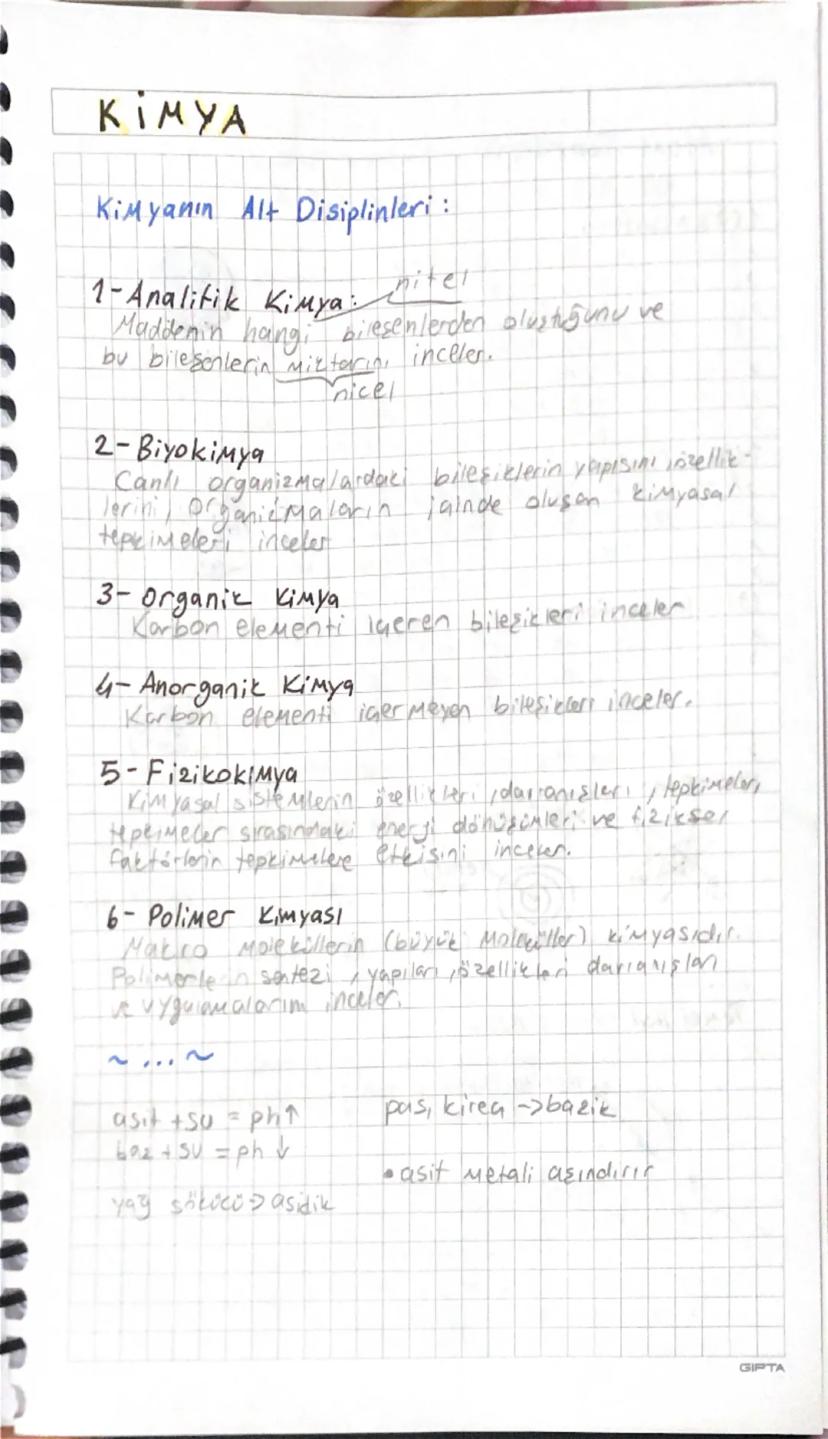 KİMYA
Kimyanın Alt Disiplinleri:
1-Analitik Kimya:
nitel
Maddenin hangi bileşenlerden oluştuğunu ve
bu bileşenlerin miktarını inceler.
nicel
2-Biyokimya
Canlı organizmalardaki bileşiklerin yapısını, özellik-
lerini, organizmaların içinde oluşan kimyasal
tepkimeleri inceler
3- Organik Kimya
Karbon elementi içeren bileşikleri inceler
4- Anorganik Kimya
Karbon elementi içermeyen bileşikleri inceler.
5-Fizikokimya
Kimyasal sistemlerin özellikleri, davranışları, tepkimeleri,
tepkimeler sırasındaki enerji dönüşümleri ve fiziksel
faktörlerin tepkimelere etkisini inceler.
6- Polimer Kimyası
Makro moleküllerin (büyük moleküller) kimyasıdır.
Polimerlerin sentezi, yapıları, özellikleri davranışları
ve uygulamalarını inceler.
~...~
asit +su = ph↑
baz + su = ph ↓
yağ sökücü → asidik
pas, kireç -> bazik
• asit metali aşındırır
GIPTA